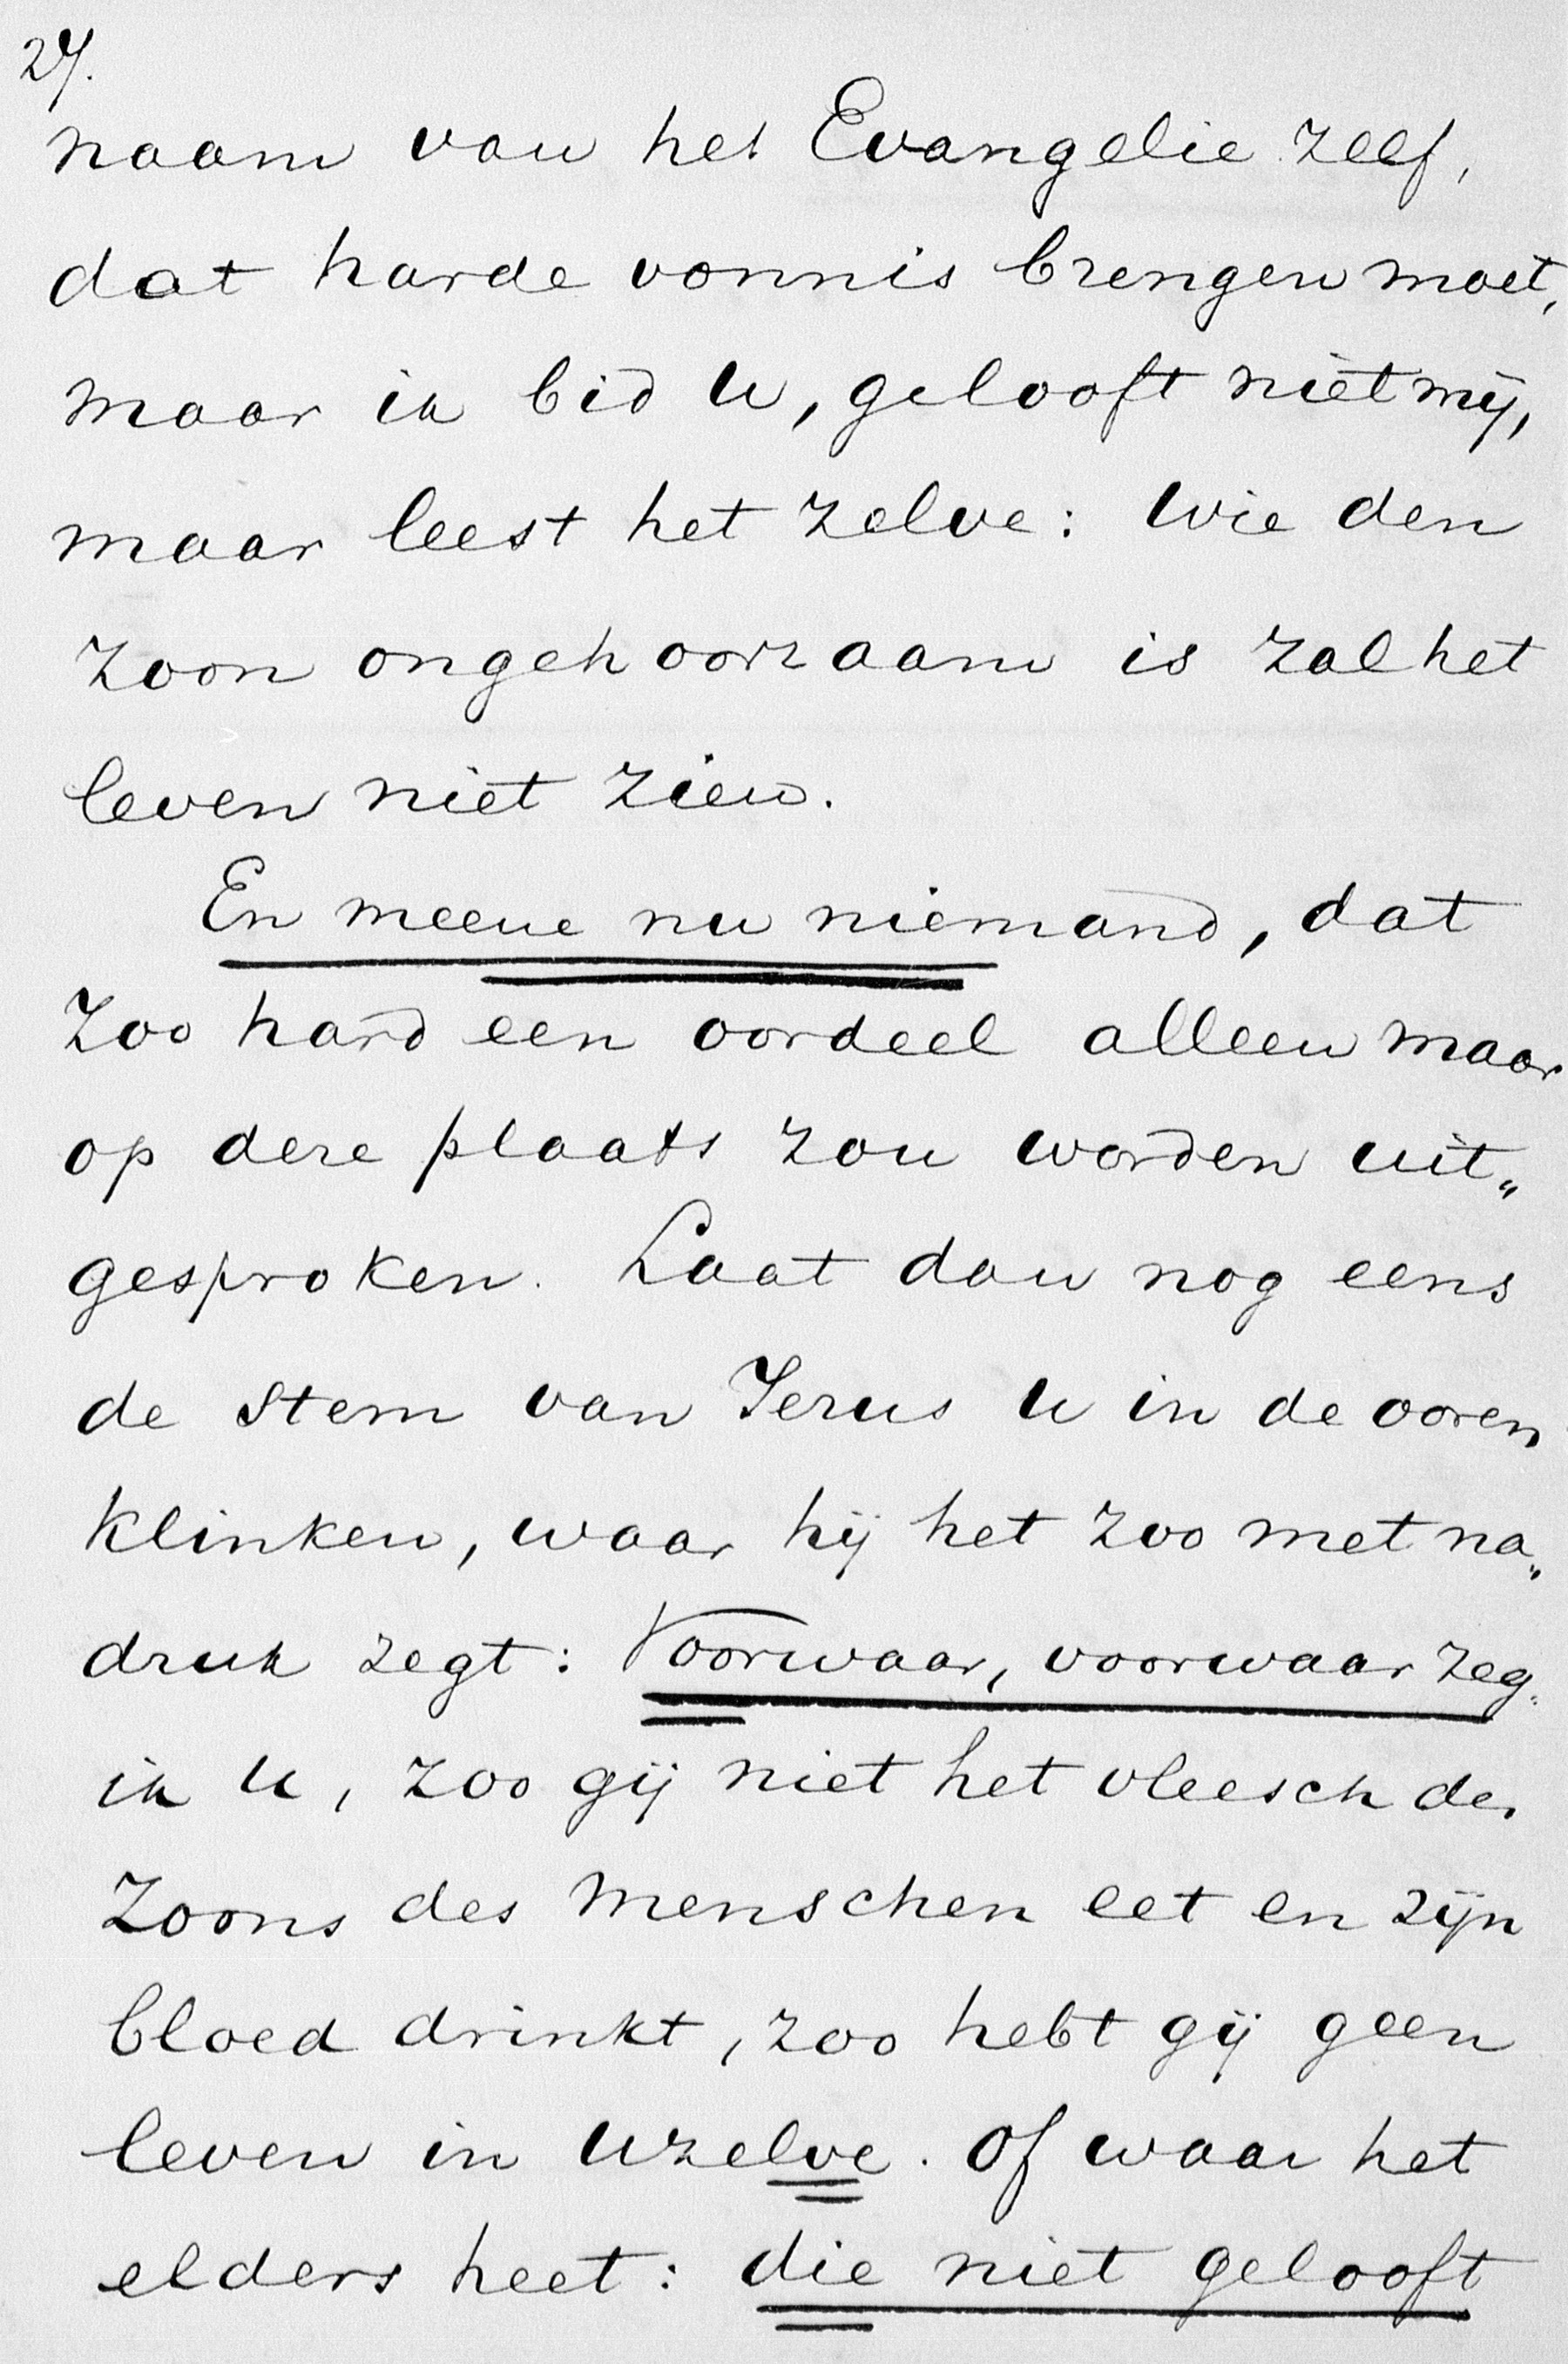 27.
naam van het Evangelie zelf,
dat harde vonnis brengen moet,
maar ik bid U, gelooft niet mij,
maar leest het zelve: Wie den
Zoon ongehoorzaam is zal het
leven niet zien.
En meene nu niemand, dat
zoo hard een oordeel alleen maar
op deze plaats zou worden uit„
gesproken. Laat dan nog eens
de stem van Jezus U in de ooren
klinken, waar hij het zoo met na„
druk zegt: Voorwaar, voorwaar zeg
ik U, zoo gij niet het vleesch des
Zoons des menschen eet en zijn
bloed drinkt, zoo hebt gij geen
leven in Uzelve. Of waar het
elders heet: die niet gelooft